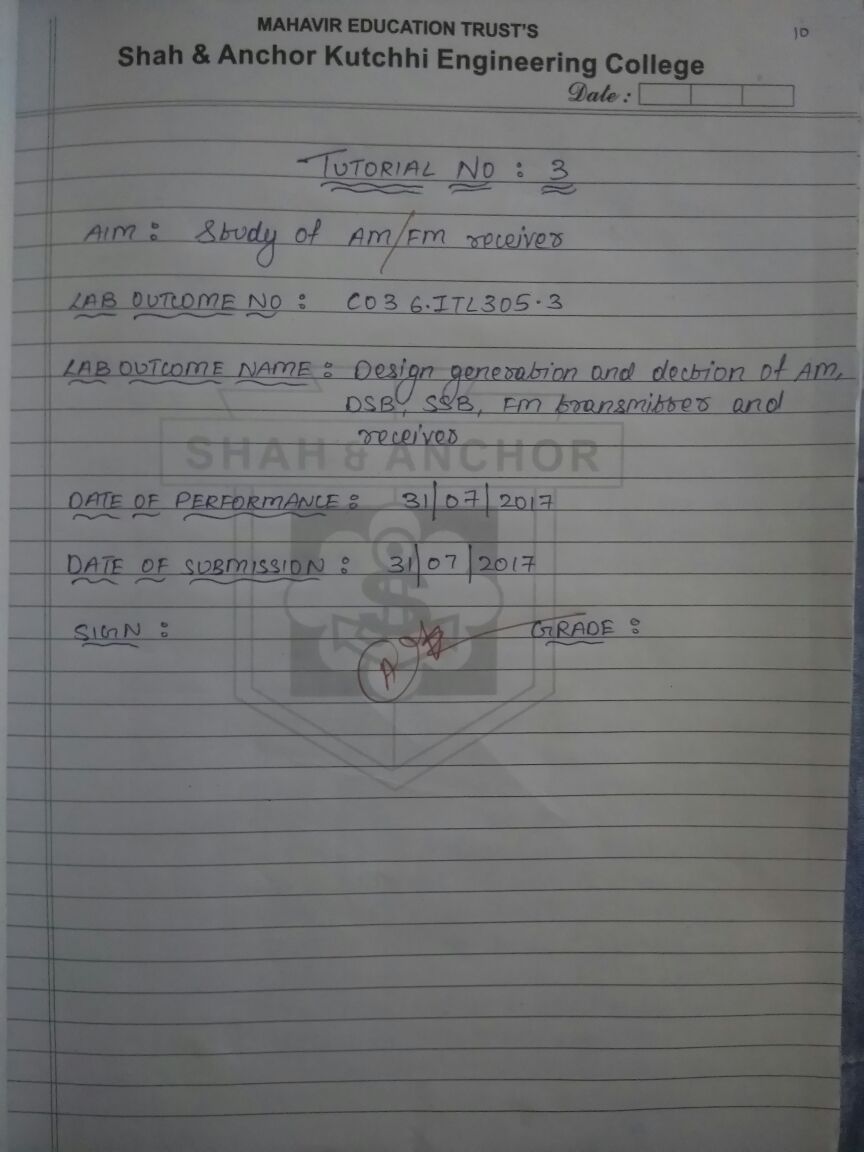 MAHAVIR EDUCATION TRUST'S
10
Shah & Anchor Kutchhi Engineering College
Date :
TUTORIAL NO : 3
AIM : Study of AM/FM receiver
LAB OUTCOME NO : CO3 6.ITL305.3
LAB OUTCOME NAME : Design generation and dection of AM,
DSB, SSB, FM transmitter and
receiver
SHAH & ANCHOR
DATE OF PERFORMANCE : 31/07/2017
DATE OF SUBMISSION : 31/07/2017
SIGN :
GRADE :
A